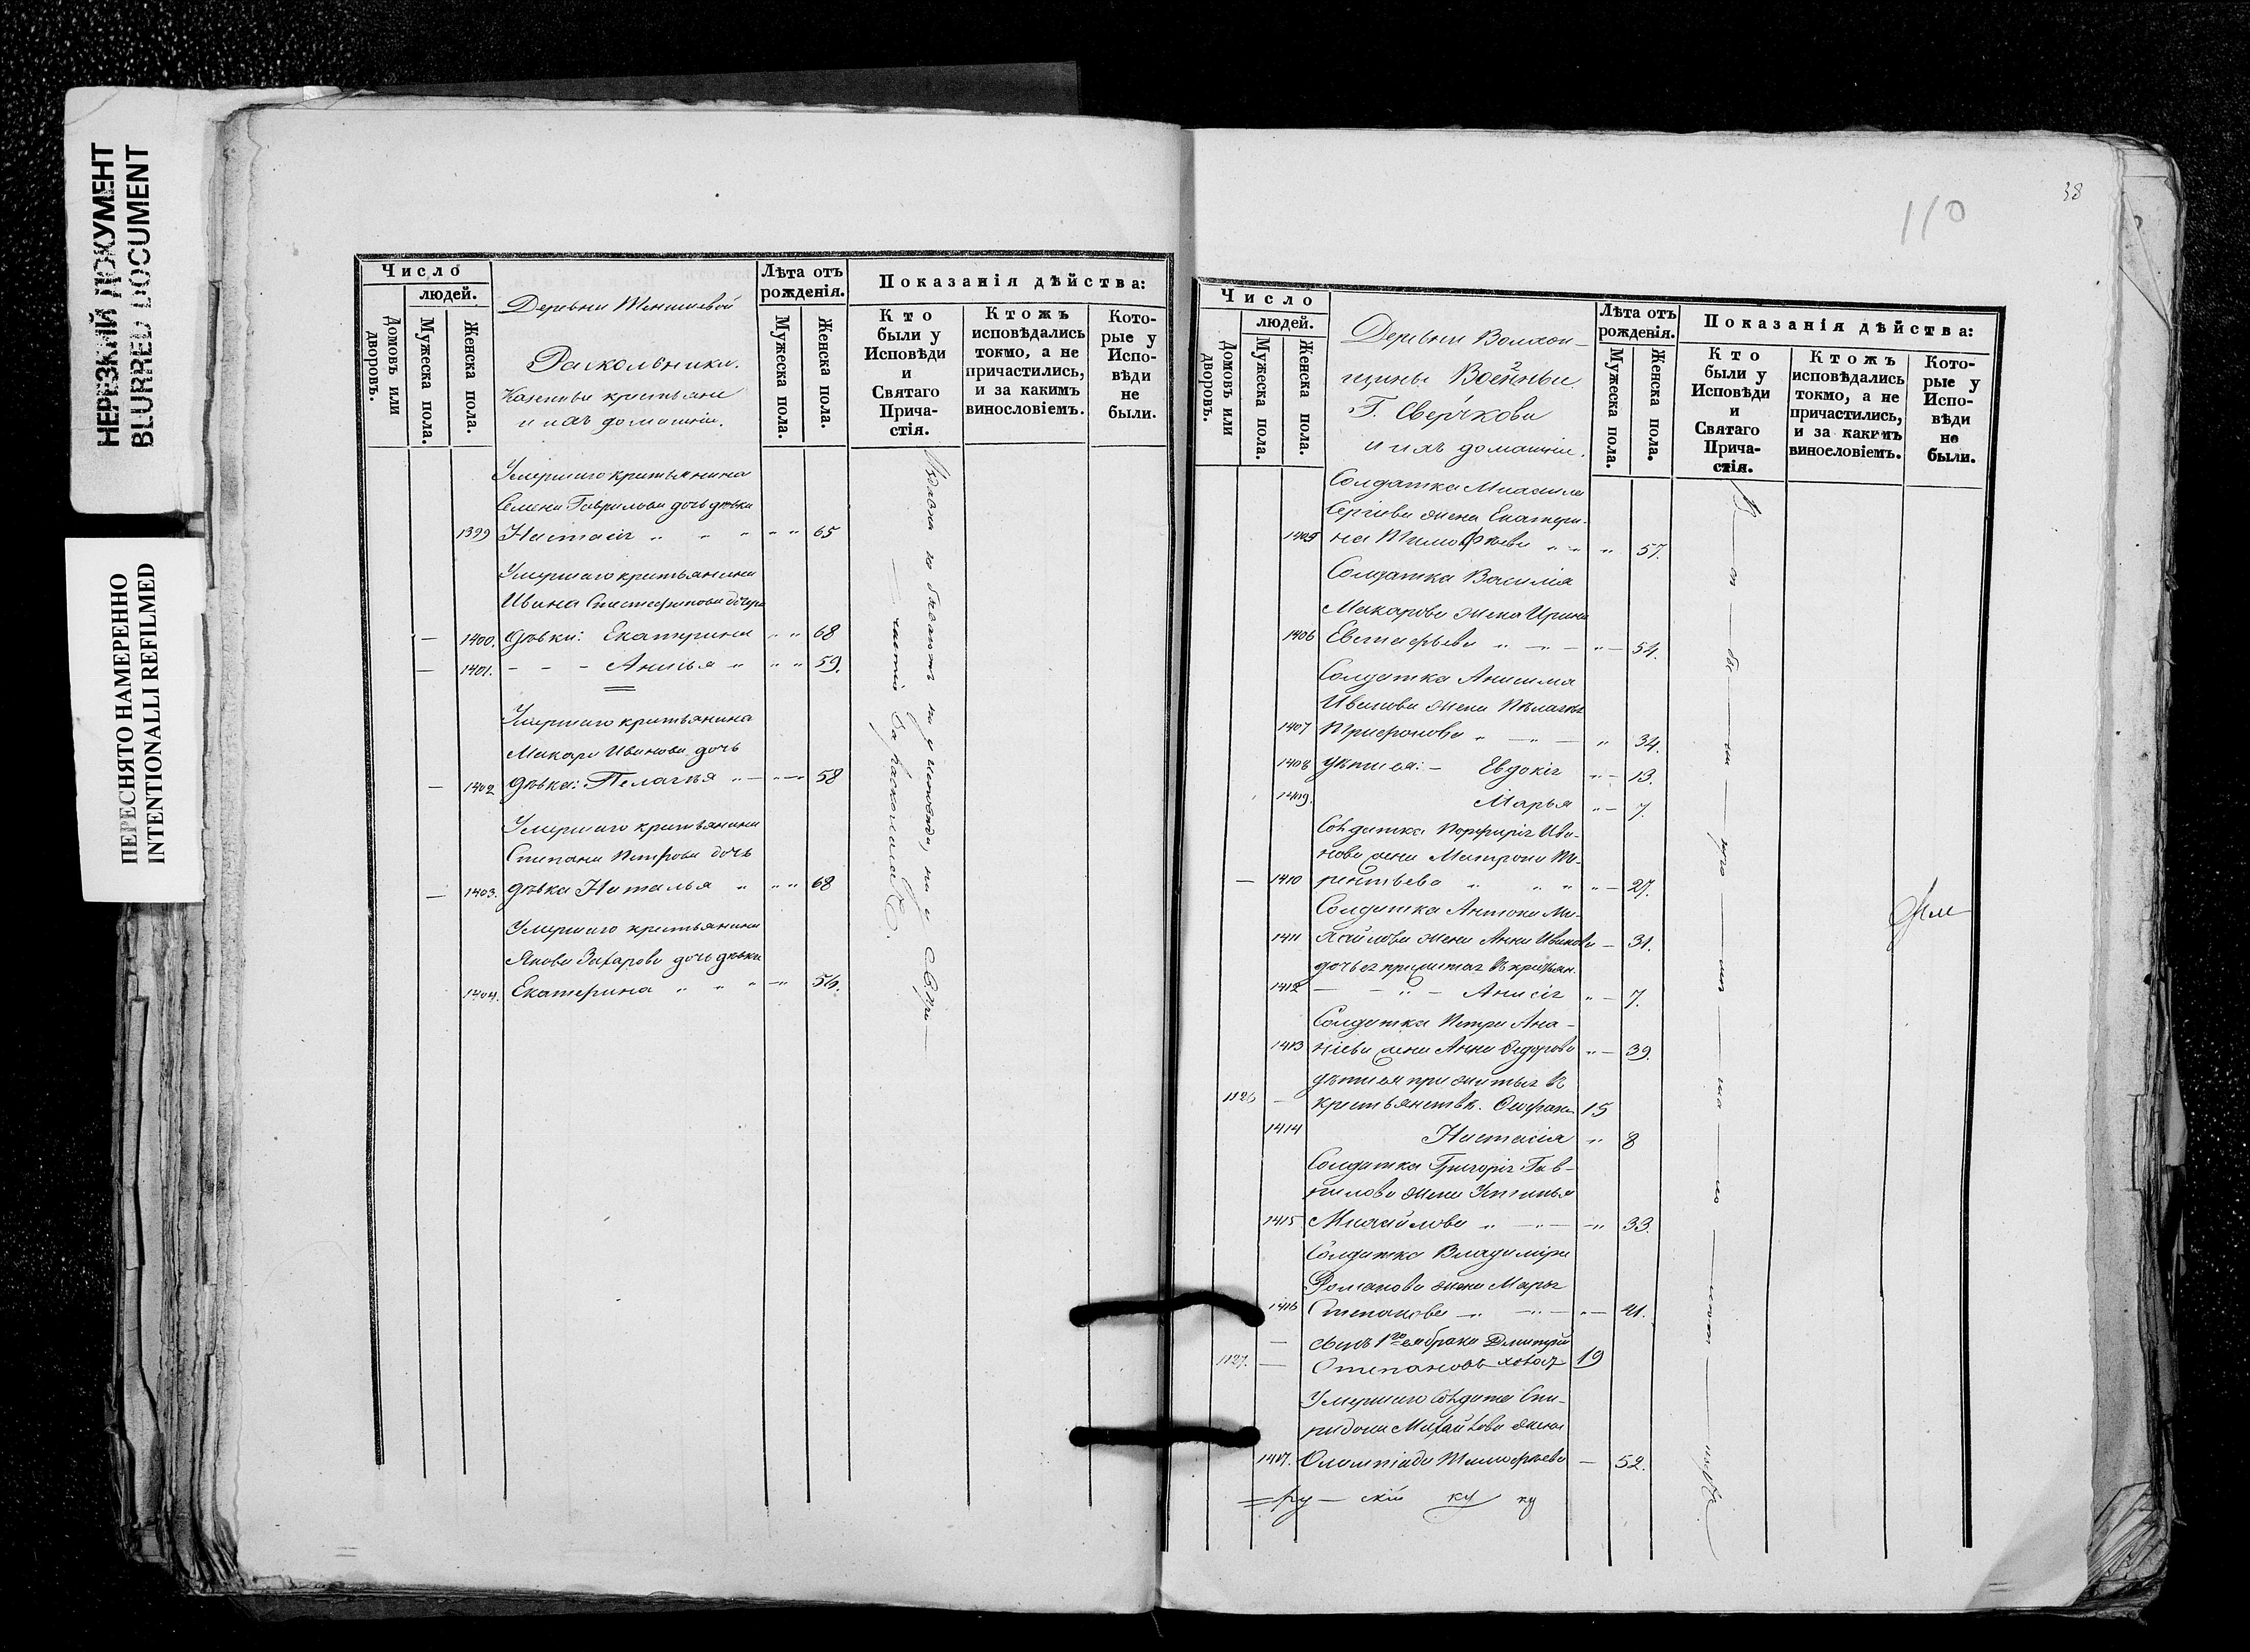 НЕРЕЗКИЙ ДОКУМЕНТ
BLURRED DOCUMENT
ПЕРЕСНЯТО НАМЕРЕННО
INTENTIONALLI REFILMED
Число
людей.
Домовъ или дворовъ.
Мужеска пола.
Женска пола.
Деревни
Раскольники.
крестьяне
и ихъ домашніи.
Лѣта отъ рожденія.
Мужеска пола.
Женска пола.
Показанія дѣйства:
Кто были у Исповѣди и Святаго Прича-стія.
Ктожъ исповѣдались токмо, а не причастились, и за какимъ винословіемъ.
Кото-рые у Испо-вѣди не были.
Умершаго крестьянина
Семена Гаврилова дочь дѣвка
1399 Настасія „ „ „ „ „ 65
Умершаго крестьянина
Ивана дочери
— 1400. дѣвки: Екатерина „ „ 68
— 1401. - - - Анисья „ „ „ 59.
Умершаго крестьянина
Макара Иванова дочь
— 1402 дѣвка: Пелагѣя „ — „ — 58
Умершаго крестьянина
Степана Петрова дочь
— 1403. дѣвка Наталья „ „ „ 68
Умершаго крестьянина
Якова Захарова дочь дѣвка
1404. Екатерина „ „ „ — 56.
за расколомъ
110
38
Число
людей.
Домовъ или дворовъ.
Мужеска пола.
Женска пола.
Деревни Волхон-
щины Военные
Г. Сверчкова
и ихъ домашніи.
Лѣта отъ рожденія.
Мужеска пола.
Женска пола.
Показанія дѣйства:
Кто были у Исповѣди и Святаго Прича-стія.
Ктожъ исповѣдались токмо, а не причастились, и за какимъ винословіемъ.
Кото-рые у Испо-вѣди не были.
Солдатка Михаила
Сергѣева жена Екатери-
1405 на Тимофѣева „ „ „ 57.
Солдатка Василія
Макарова жена Ирина
1406 Евстафьева „ — „ — „ — 54.
Солдатка Анисима
Иванова жена Пелагѣя
1407 Трифонова „ — „ — „ 34.
1408 дѣти ея: — Евдокія „ — 13.
1409. Марья „ — 7.
Солдатка Порфирія Ива-
нова жена Матрона Те-
— 1410 рентьева „ „ „ „ — 27.
Солдатка Антона Ми-
1411 хайлова жена Анна Иванова — 31.
1412 — — „ — Анисія „ — 7.
Солдатка Петра Ана-
1413 ніева жена Анна Федорова „ — 39.
дѣти ея прижитыя въ
1126 — крестьянствѣ. 15
1414 Настасія „ 8
Солдатка Григорія Гав-
рилова жена Устинья
1415 Михайлова „ — „ — — „ 33.
Солдатка Владиміра
Романова жена Марья
1416 Степанова — „ — „ — „ — 41.
— сынъ 1го ея брака Дмитрій
1127. — Степановъ холост 19
Умершаго Солдата Спи-
ридона Михайлова жена
1417. Олимпіада Тимофѣева — 52.